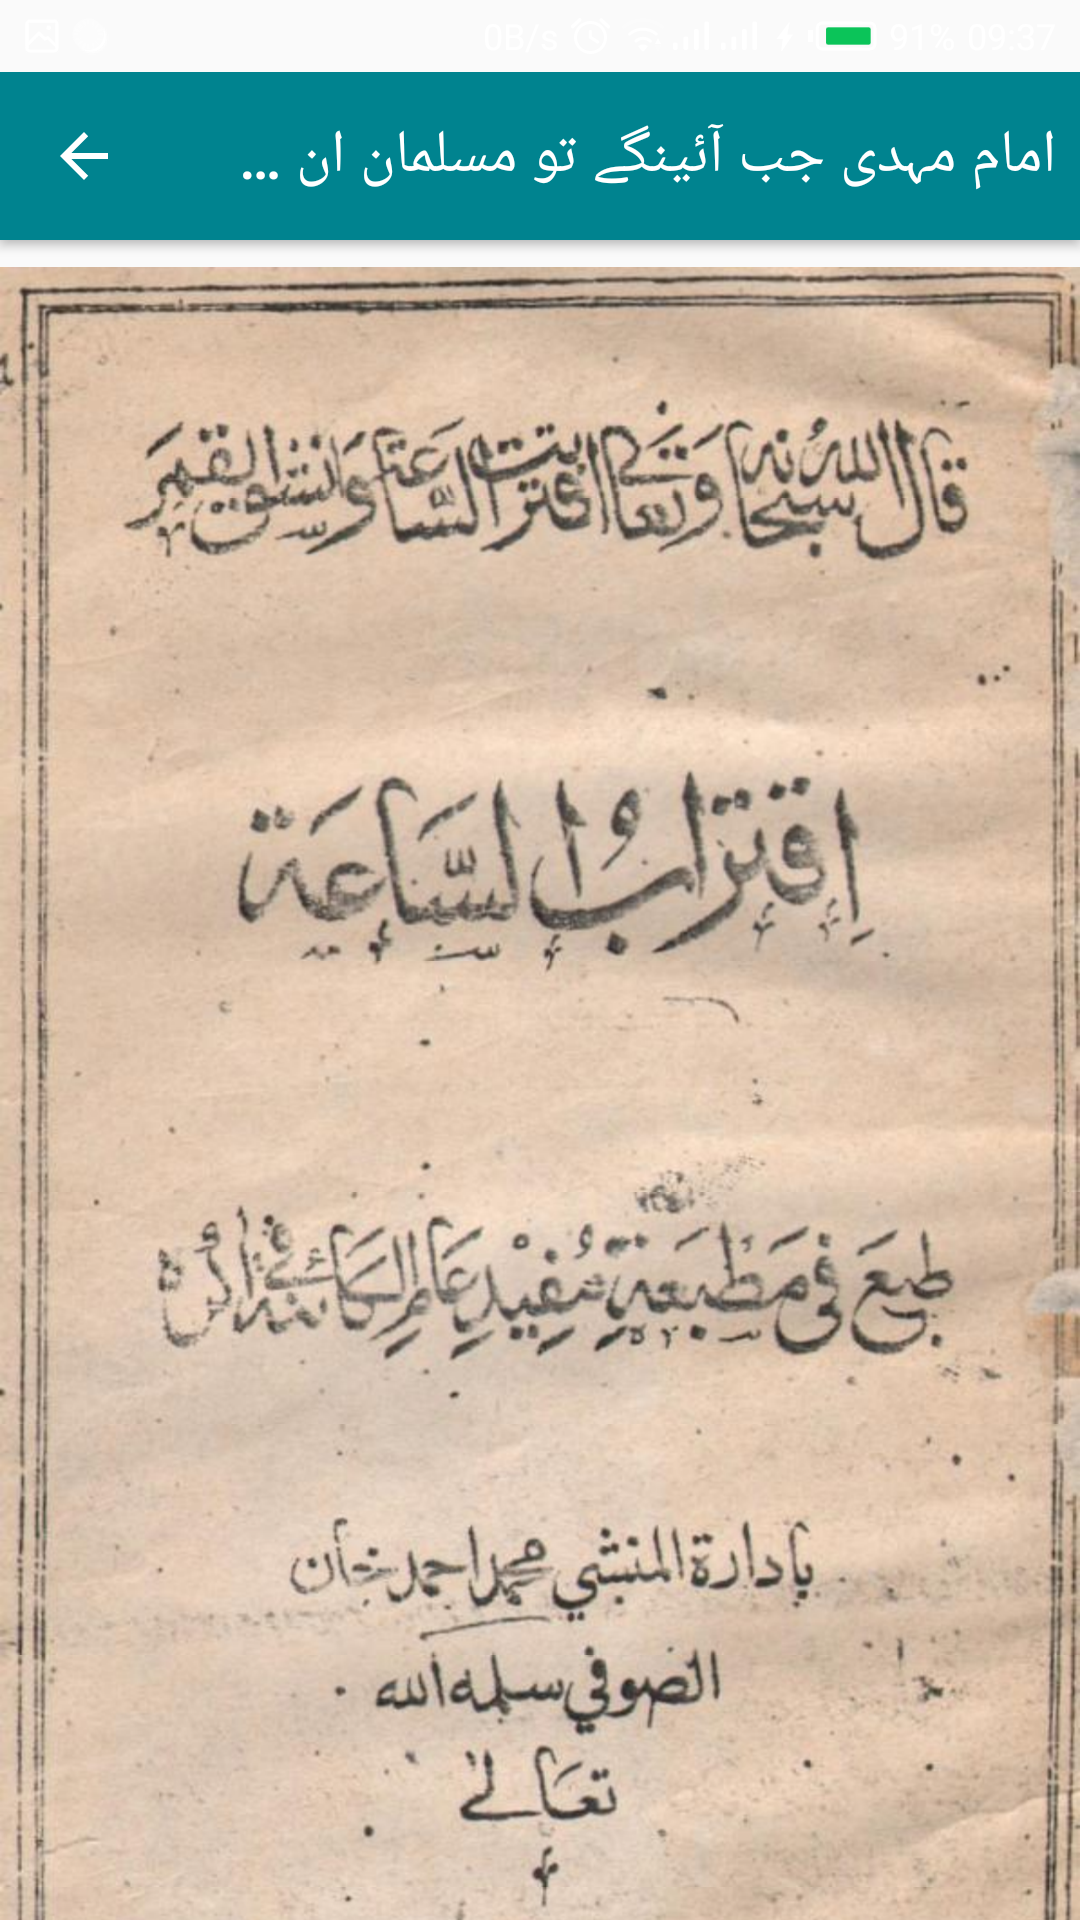 0B/s 91% 09:37
امام مہدی جب آئینگے تو مسلمان ان ...
قال الله سبحانه وتعالى اقتربت السَّاعَة وَانشق القمر
اِقترابُ السَّاعَة
طبِعَ فى مَطبَعَةِ مُفِيْدِ عَامِ الكائنة فى اكره
بادارة المنشي محمد احمد خان
الصوفي سلمه الله
تعَالے